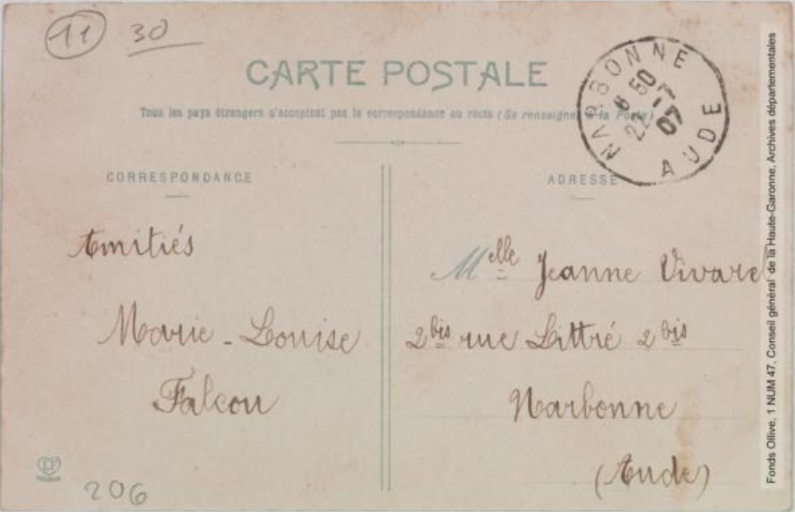 11 30
CARTE POSTALE
Tous les pays étrangers n'acceptent pas la correspondance au recto (Se renseigner à la Poste)
NARBONNE
6 50
22 -7
07
AUDE
CORRESPONDANCE
Amitiés
Marie-Louise
Falcou
206
ADRESSE
Melle Jeanne Vivarel
2bis rue Littré 2bis
Narbonne
(Aude)
Fonds Ollive, 1 NUM 47, Conseil général de la Haute-Garonne, Archives départementales